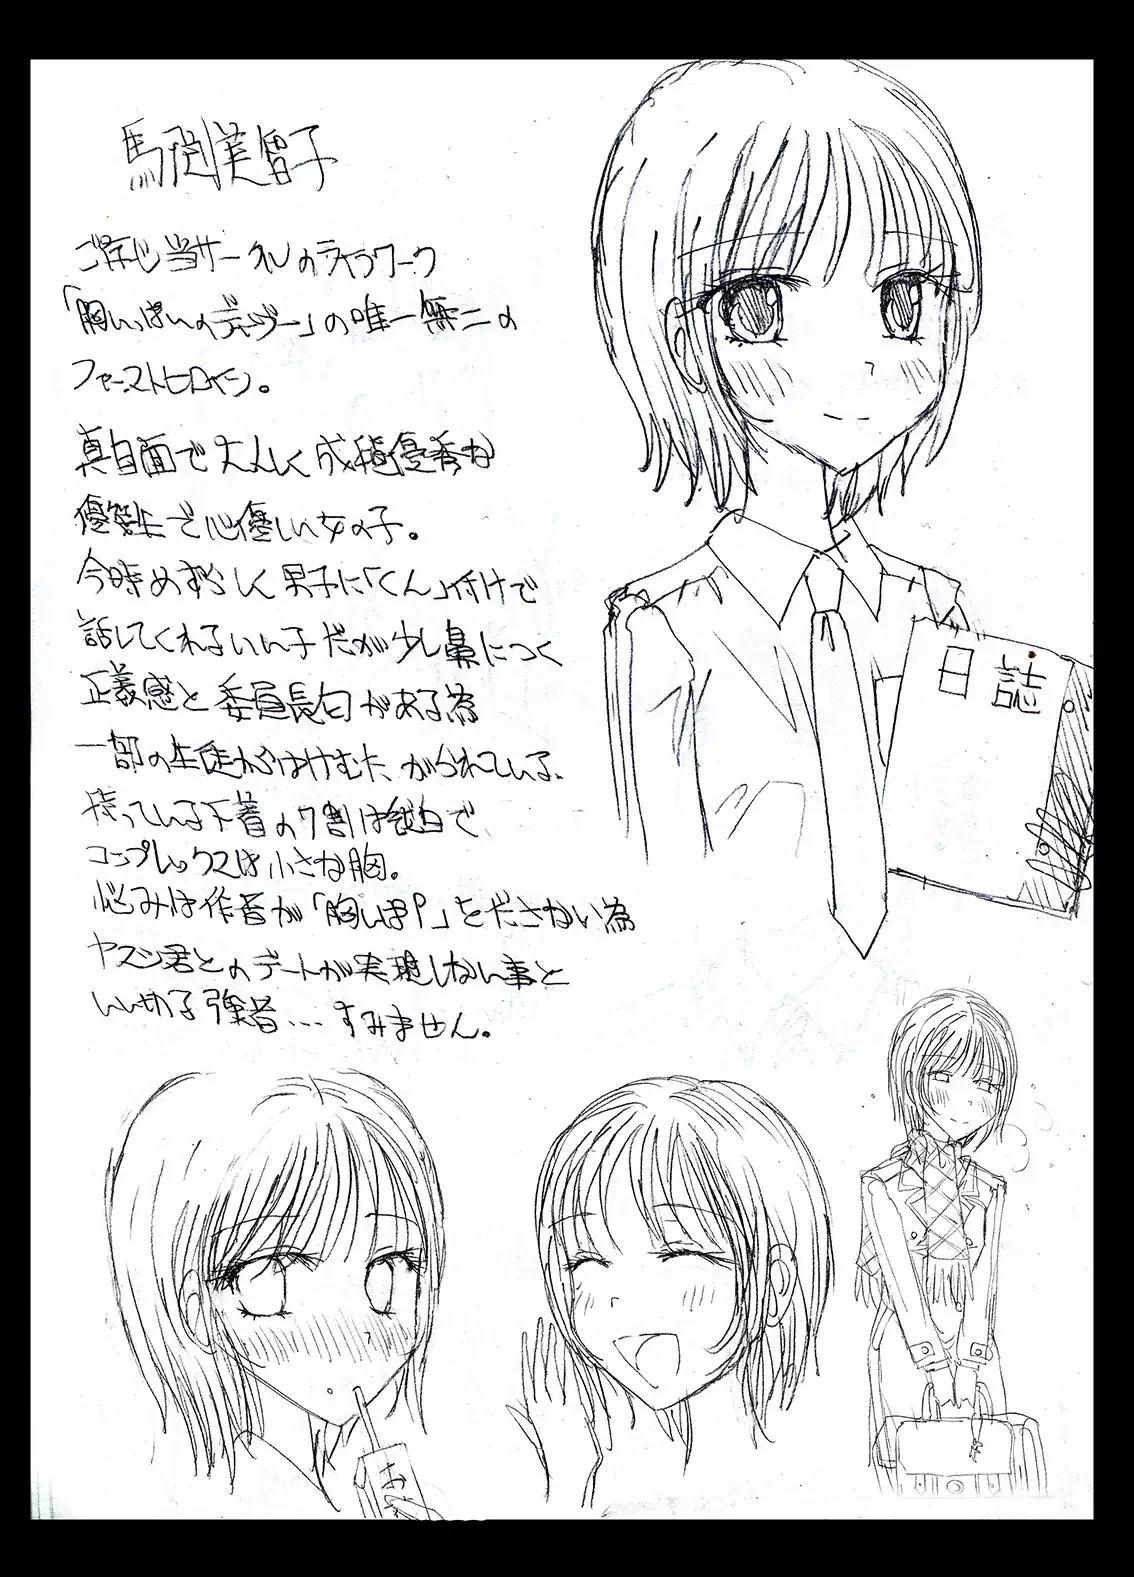 馬渕美智子
ご存じ当サークルのライフワーク
「胸いっぱいのディンゴー」の唯一無二の
ファーストヒロイン。
真面目で大人しく成績優秀な
優等生で心優しい女の子。
今時めずらしく男子に「くん」付けで
話してくれるいい子だが少し鼻につく
正義感と委員長臭がある為
一部の生徒からはけむたがられている。
持っている下着の7割は純白で
コンプレックスは小さな胸。
悩みは作者が「胸いぱ」をださない為
ヤスシ君とのデートが実現しない事と
いい切る強者...すみません。
日誌
お